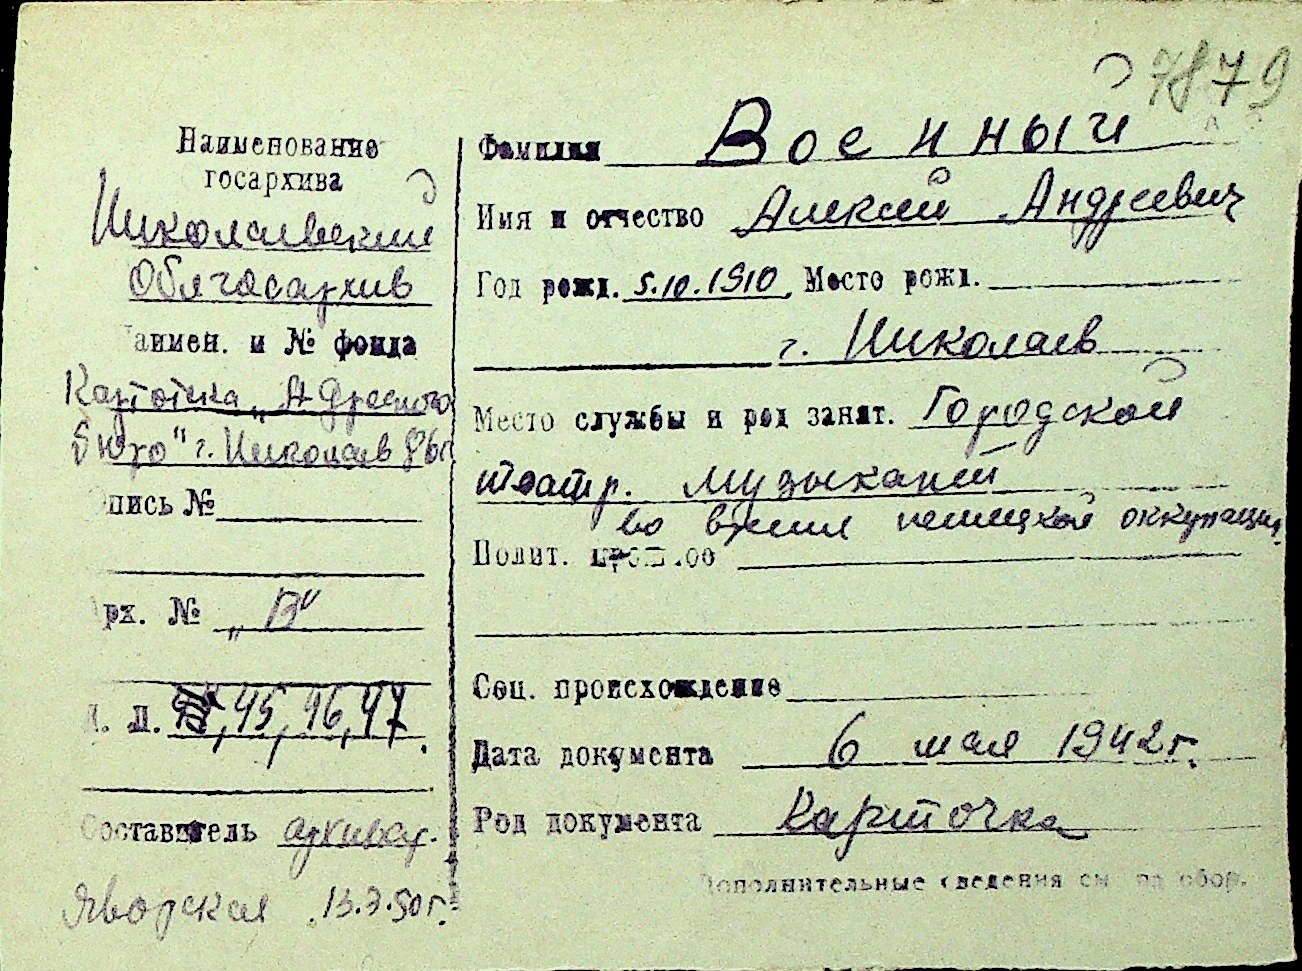 7879
Наименование
госархива
Николаевский
Облгосархив
аимен. и № фонда
Картотека "Адресного
бюро" г. Николаев
пись №
рх. № "В"
л. 45, 46, 47.
Составитель архивар.
Яворская 13.3.50г.
Фамилия Военный
Имя и отчество Алексей Андреевич
Год рожд. 5.10.1910 Место рожд.
г. Николаев
Место службы и род занят. Городской
театр. музыкант
во время немецкой оккупации.
Полит.
Соц. происхождение
Дата документа 6 мая 1942г.
Род документа Карточка
Дополнительные сведения см на обор.